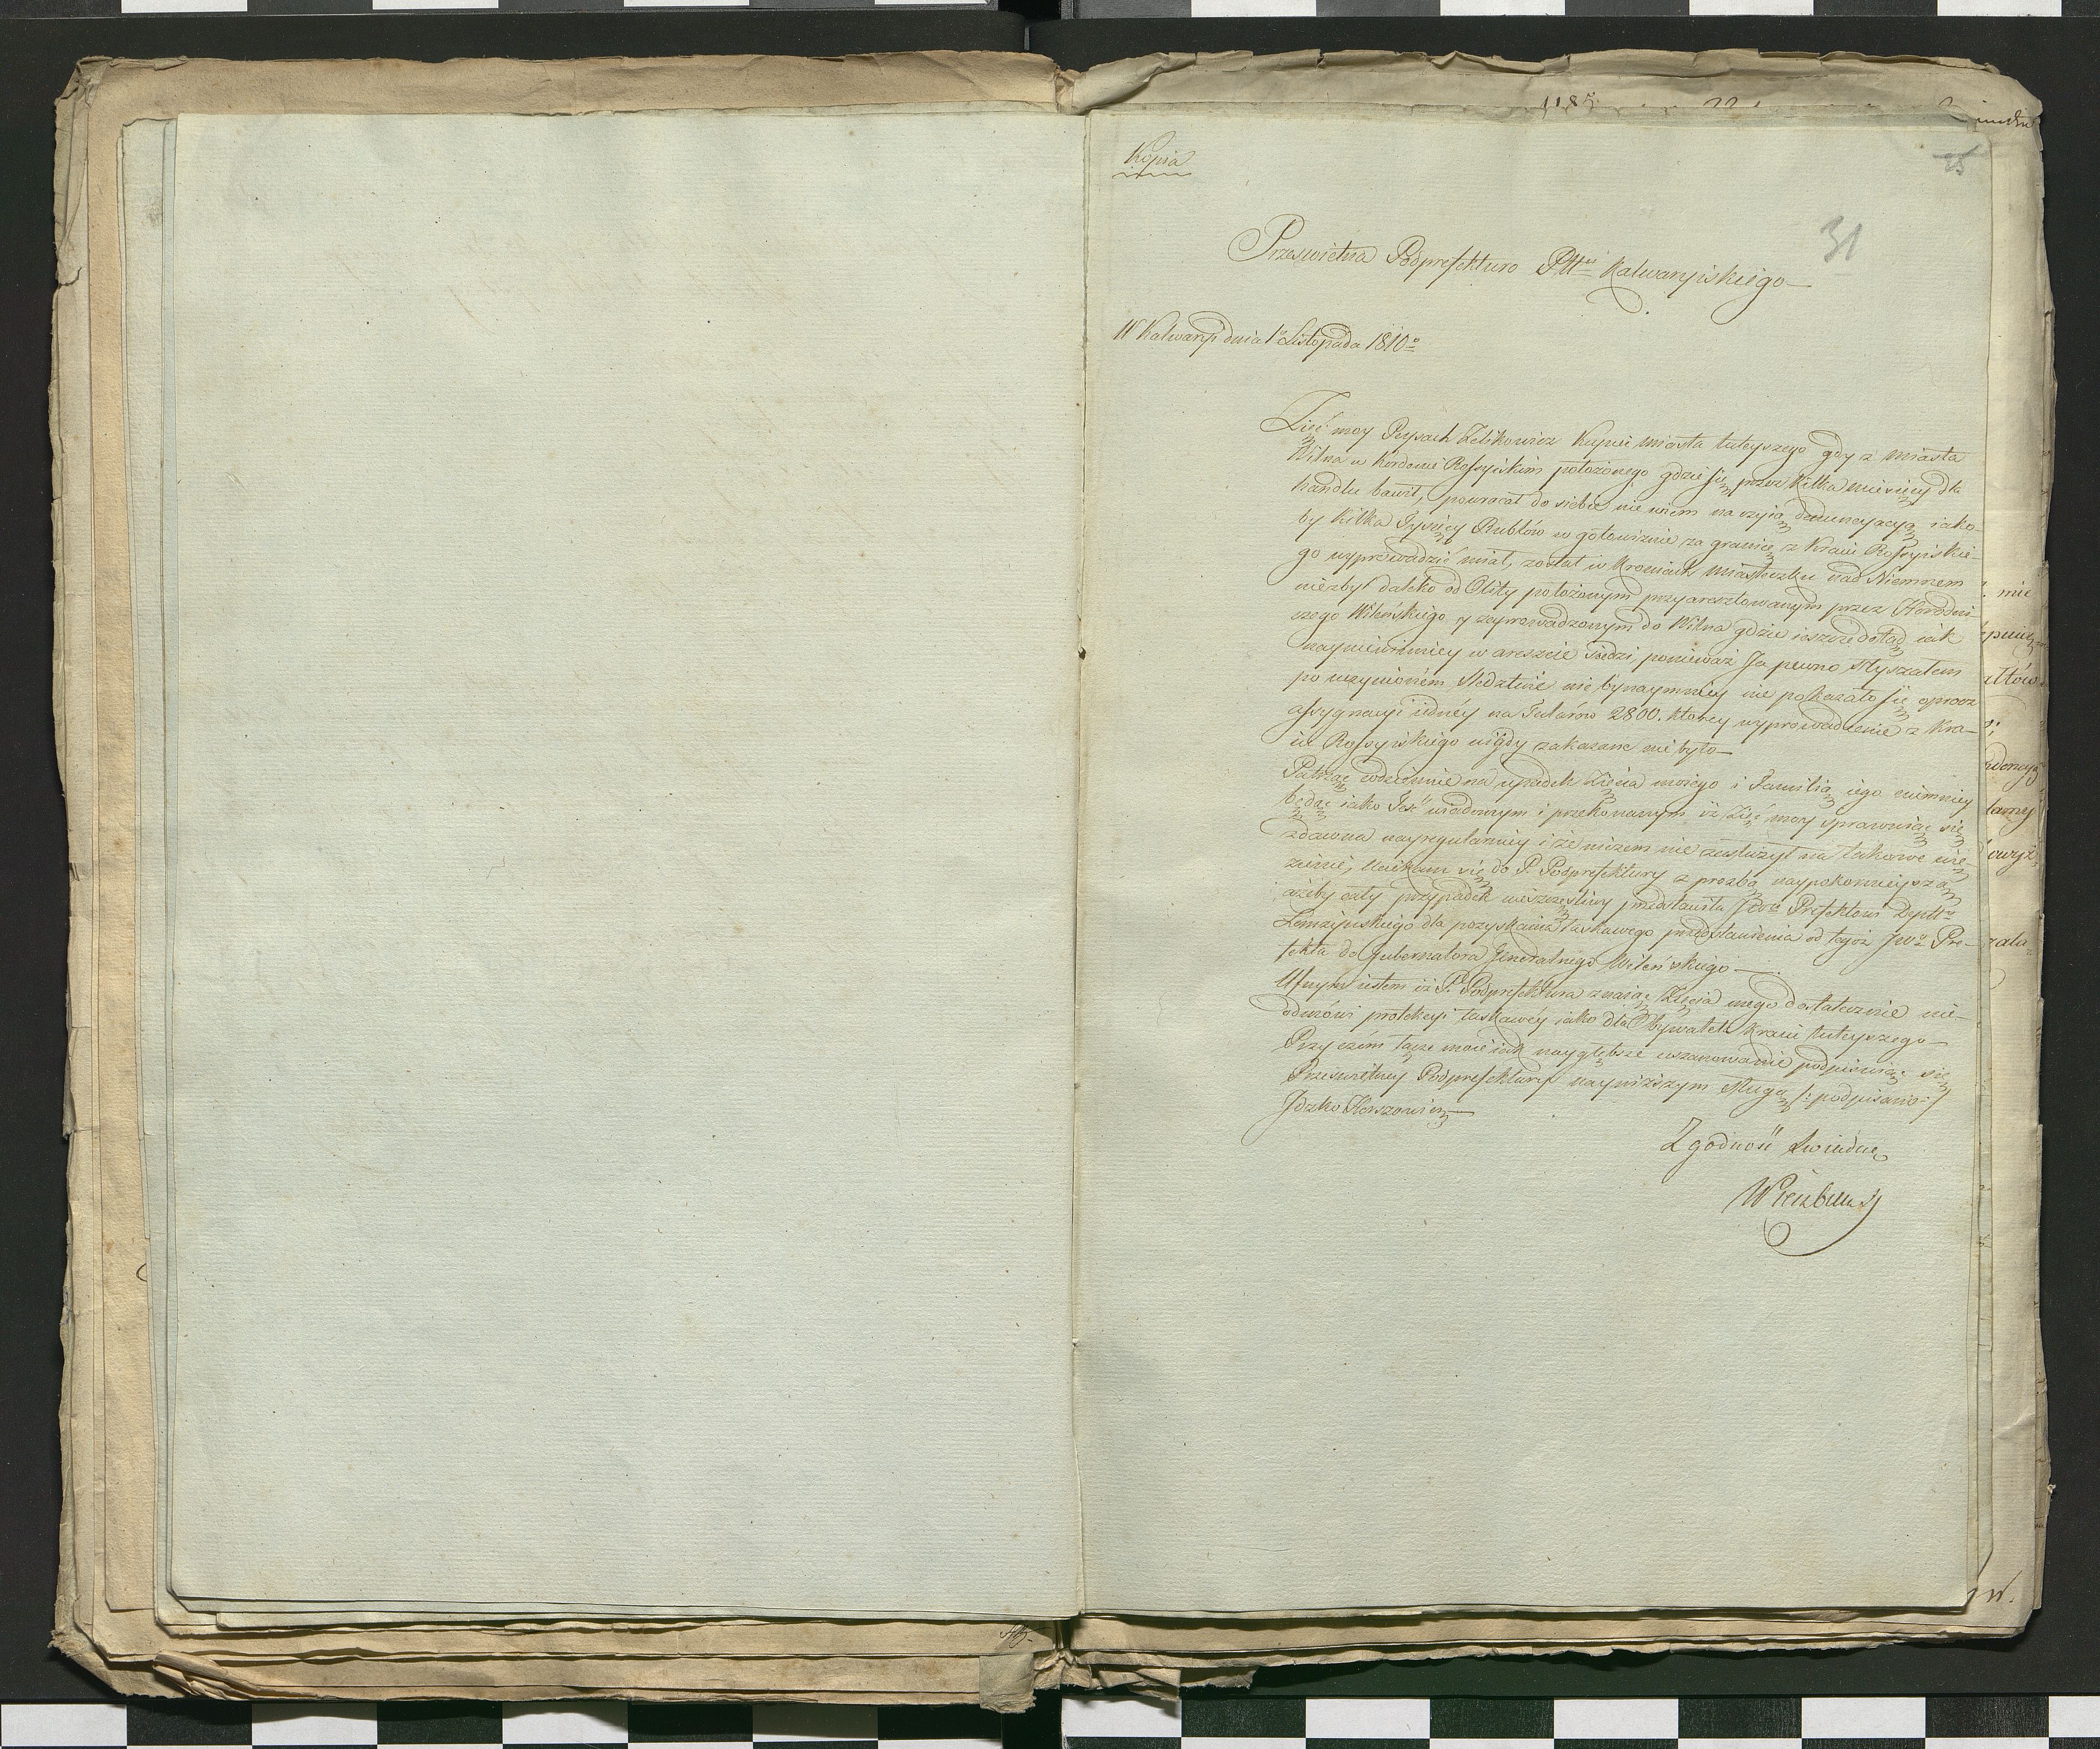 Kopia
25
31
Przeswietna Podprefekturo Pttu Kalwaryiskiego
W Kalwaryi dnia 1o Listopada 1810o
Zięć moy Peysach Zelikowicz Kupiec miasta tuteyszego gdy z miasta
Wilna w Kordonie Rossyiskim położonego gdzie się przez kilka miesięcy dla
handlu bawił, powracał do siebie nie wiem na czyią denuncyacyą iako-
by kilka Tysięcy Rublów w gotowiznie za granicę z Kraiu Rossyiskie-
go wyprowadzić miał, został w Kroniach miasteczku nad Niemnem
niezbyt daleko od Olity położonym przyaresztowanym przez Horodni
czego Wileńskiego y zaprowadzonym do Wilna gdzie ieszcze dotąd iak
nayniewinniey w areszcie siedzi, ponieważ Ja pewno słyszałem
po uczynioném śledztwie nic bynaymniey nie pokazało się oprocz
assygnacyi iednéy na Talarów 2800. ktorey wyprowadzenie z Kra-
iu Rossyiskiego nigdy zakazane nie było
Patrząc codziennie na upadek Zięcia moiego i Familią iego niemniey
będąc iako Teść wiadomym i przekonanym iż Zięć moy sprawuiąc się
zdawna nayregularniey i że niczem nie zasłużył na takowe wię-
zienie, uciekam się do P. Podprefektury z prozbą naypokornieyszą
ażeby cały przypadek nieszczęśliwy przedstawiła JWu Prefektowi Depttu
Łomżyńskiego dla pozyskania łaskawego przedstawienia od tegoż JWo Pre-
fekta do Gubernatora Jeneralnego Wileńskiego
Ufnym iestem iż P. Podprefektura znaiąc Zięcia mego dostatecznie nie-
odmówi protekcyi łaskawéy iako dla Obywatela Kraiu tuteyszego
Przyczém łączę moie iak naygłębsze uszanowanie podpisuiąc się
Prześwietney Podprefektury nayniższym sługą /: podpisano :/
Jdzko Herszowicz
Zgodność świadczę